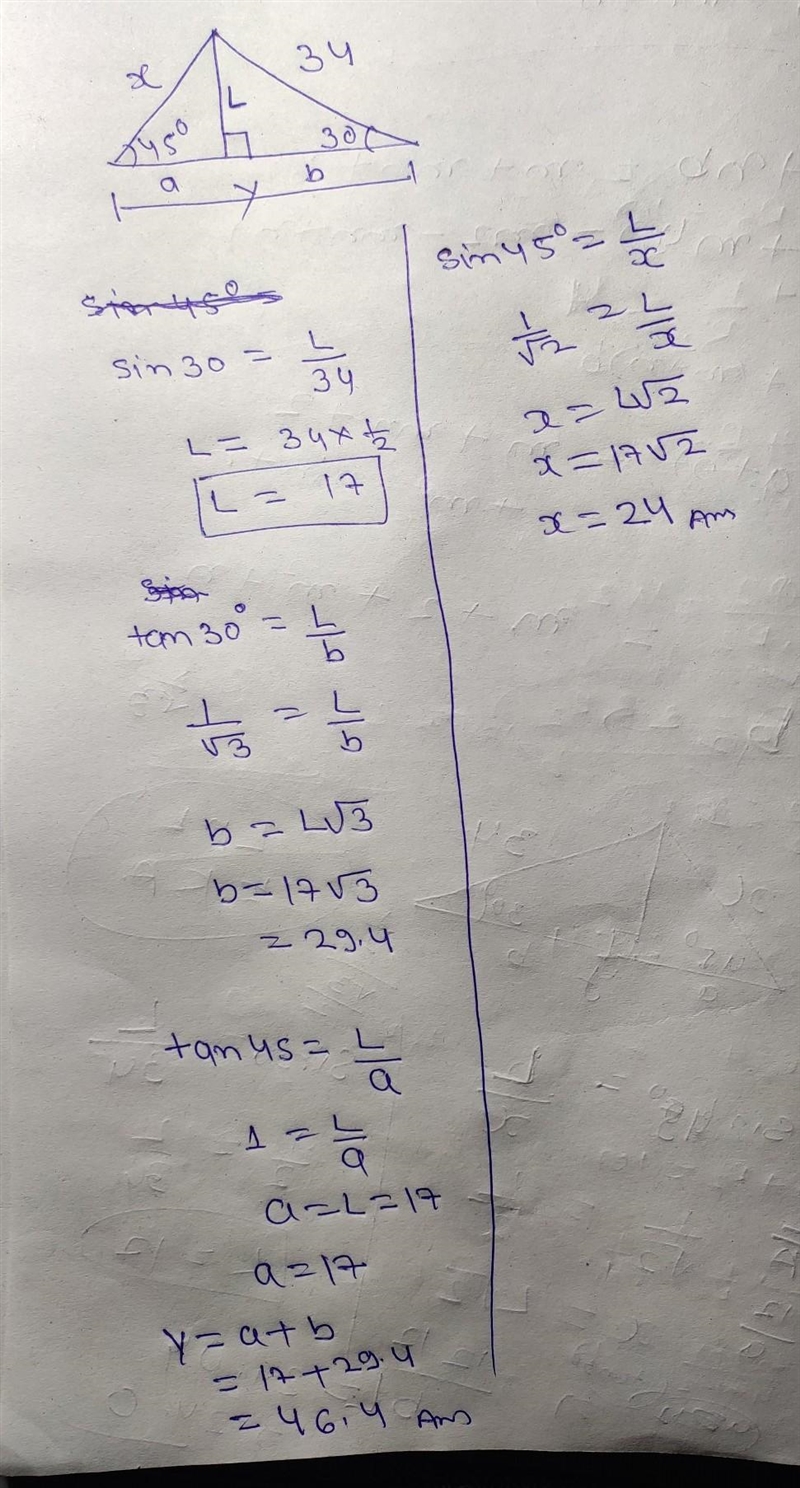 x 34
L
45° 30
a b
y
sin 45°
sin 30 = L/34
L = 34 × 1/2
L = 17
sin
tan 30° = L/b
1/√3 = L/b
b = L√3
b = 17√3
= 29.4
tan 45 = L/a
1 = L/a
a = L = 17
a = 17
y = a + b
= 17 + 29.4
= 46.4 Ans
sin 45° = L/x
1/√2 = L/x
x = L√2
x = 17√2
x = 24 Ans